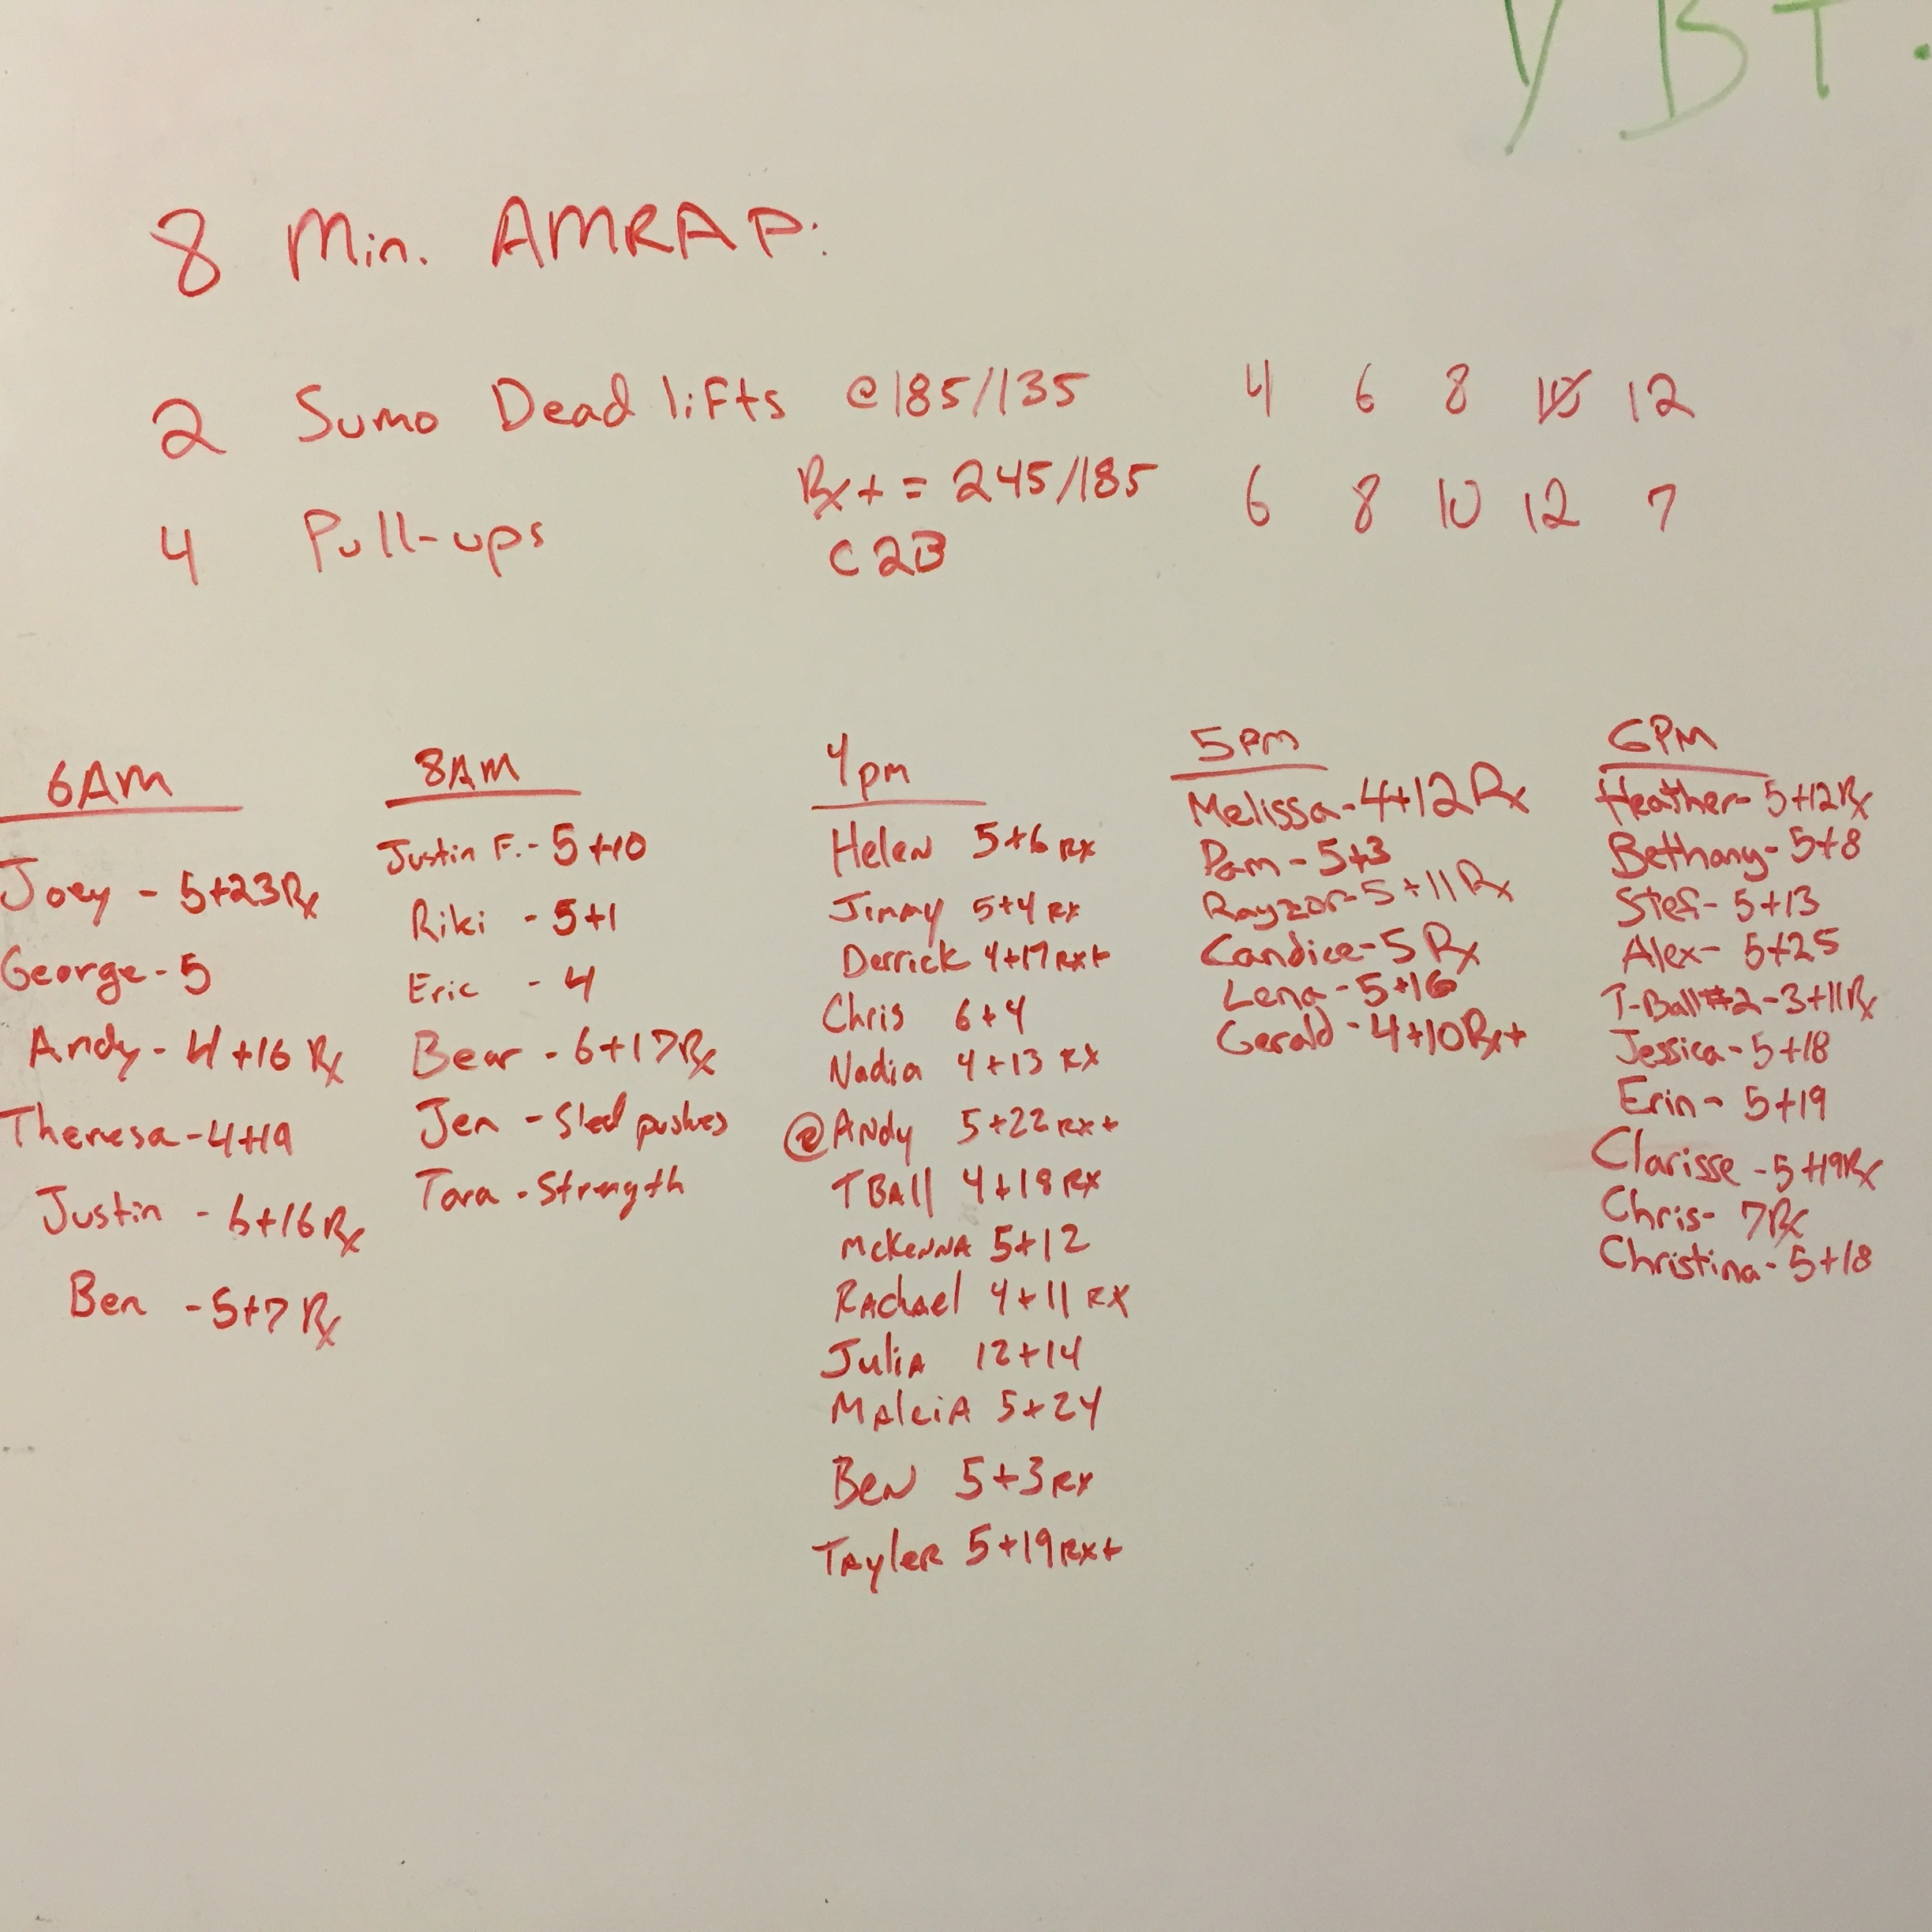 YBT.
8 Min. AMRAP:
2 Sumo Deadlifts @185/135 4 6 8 10 12
Rx+ = 245/185 6 8 10 12 7
4 Pull-ups C2B
6AM
Joey - 5+23Rx
George - 5
Andy - 4+16 Rx
Theresa - 4+19
Justin - 6+16Rx
Ben - 5+7 Rx
8AM
Justin F. - 5+10
Riki - 5+1
Eric - 4
Bear - 6+17Rx
Jen - Sled pushes
Tara - Strength
4pm
Helen 5+6 Rx
Jimmy 5+4 Rx
Derrick 4+17 Rx+
Chris 6+4
Nadia 4+13 Rx
@Andy 5+22 Rx+
TBAll 4+18 Rx
McKenna 5+12
Rachael 4+11 Rx
Julia 12+14
5+24
Ben 5+3 Rx
Tayler 5+19 Rx+
5PM
Melissa - 4+12 Rx
Pam - 5+3
Rayzor - 5+11 Rx
Candice - 5 Rx
Lena - 5+16
Gerald - 4+10Rx+
6PM
Heather - 5+12Rx
Bethany - 5+8
Stef - 5+13
Alex - 5+25
T-Ball #2 - 3+11Rx
Jessica - 5+18
Erin - 5+19
Clarisse - 5+19Rx
Chris - 7Rx
Christina - 5+18